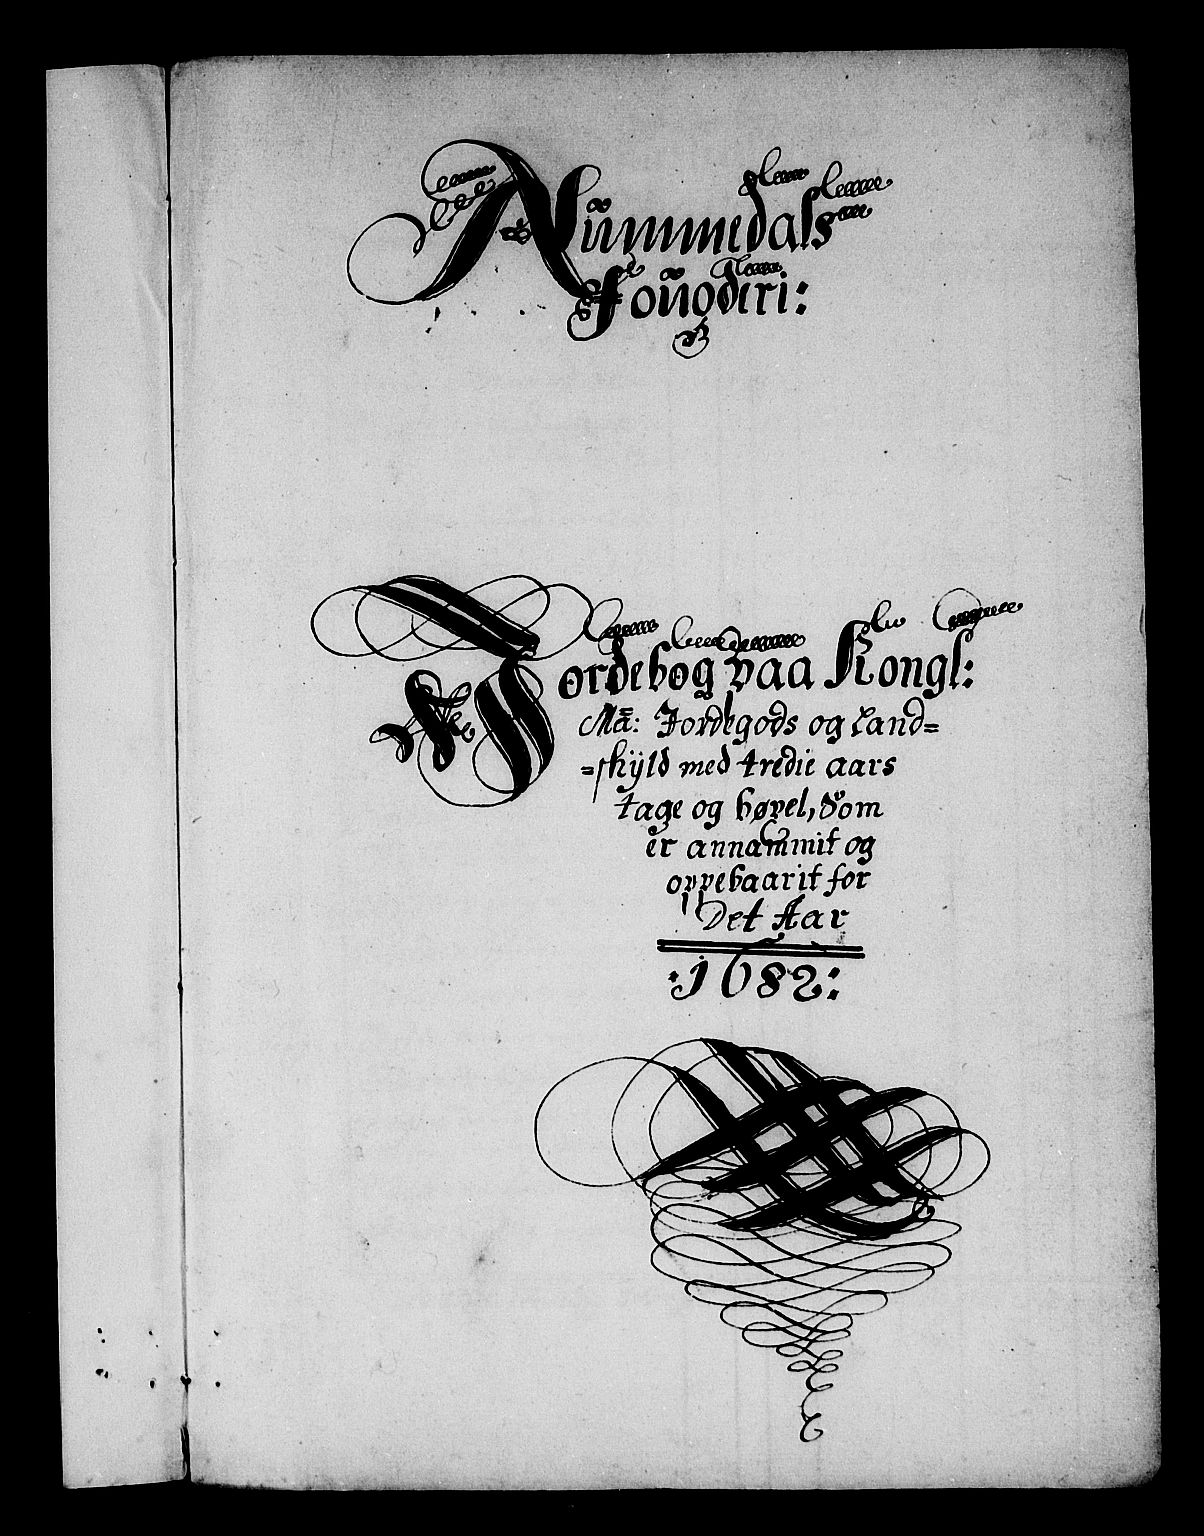 Nŭmmedals
Foŭgderi:
Jordebog paa Kongl:
Ma: Jordegods og Land=
=skyld med tredie aars
tage og bøxel, Som
er annammit og
oppebaarit for
Det Aar
:1682: